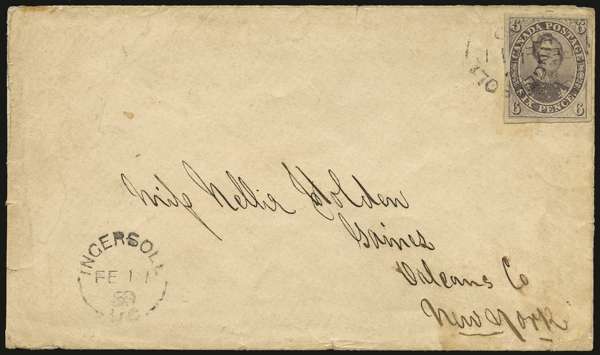 6 CANADA POSTAGE 6
6 SIX PENCE 6
Miss Nellie Holden
Gaines
Orleans Co
New York
INGERSOLL
FE 11
59
U.C